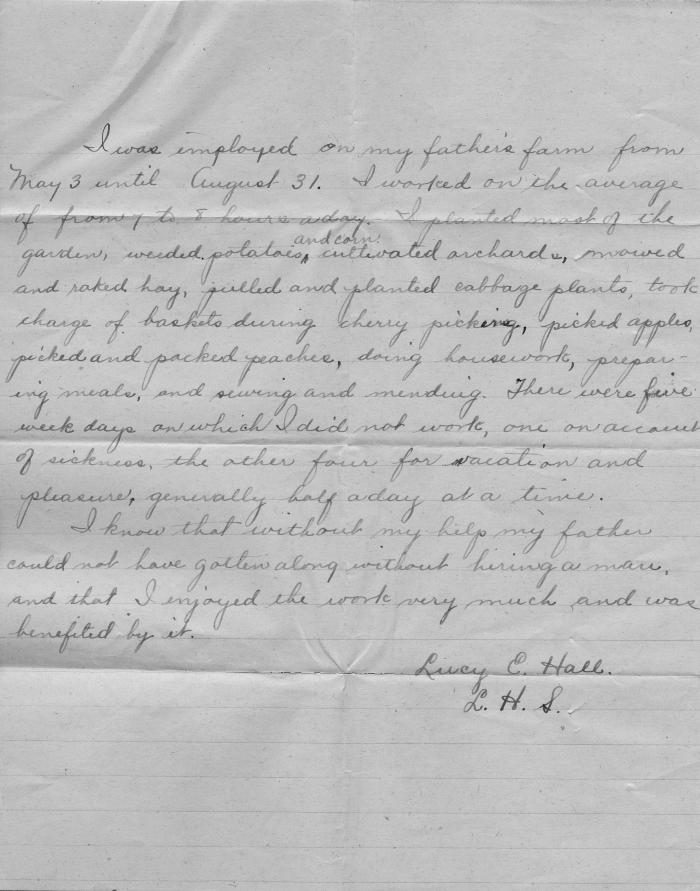 I was employed on my father's farm from
May 3 until August 31. I worked on the average
of from 7 to 8 hours a day. I planted most of the
garden, weeded potatoes, and corn, cultivated orchards, mowed
and raked hay, pulled and planted cabbage plants, took
charge of baskets during cherry picking, picked apples,
picked and packed peaches, doing housework, prepar-
ing meals, and sewing and mending. There were five
week days on which I did not work, one on account
of sickness, the other four for vacation and
pleasure, generally half a day at a time.
I know that without my help my father
could not have gotten along without hiring a man,
and that I enjoyed the work very much and was
benefited by it.
Lucy E. Hall.
L. H. S.